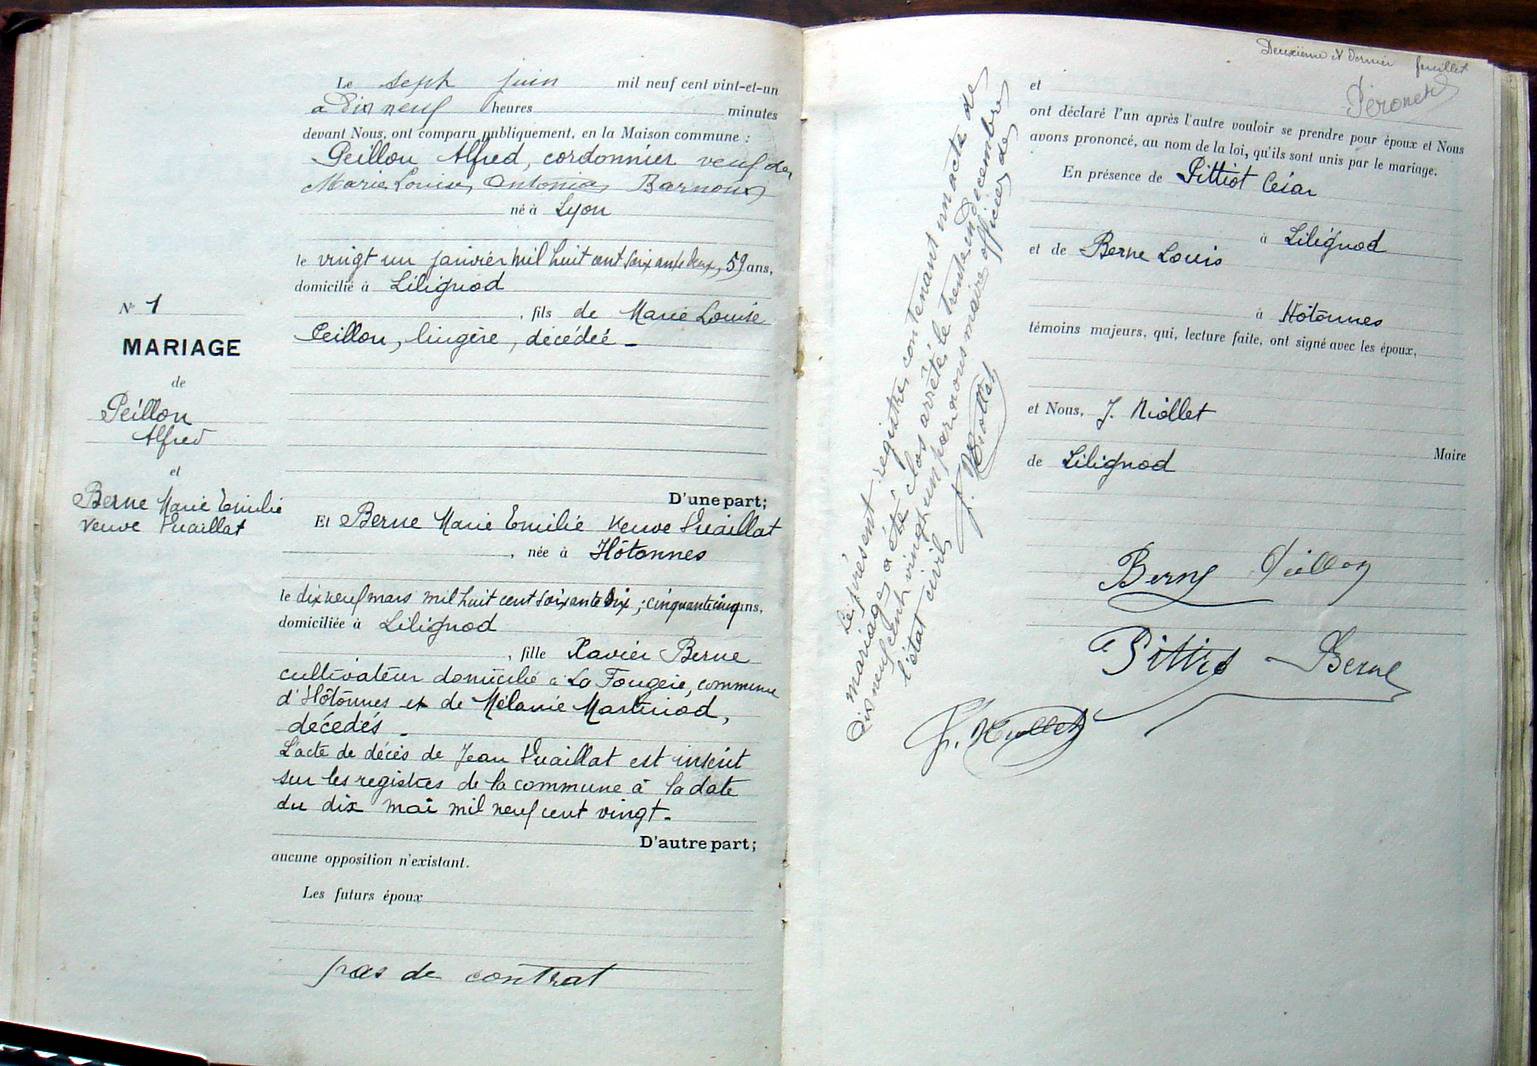 Le sept juin mil neuf cent vint-et-un
à Dix neuf heures minutes
devant Nous, ont comparu publiquement, en la Maison commune :
Peillon Alfred, cordonnier veuf de
Marie Louise Antonia Barnoux
né à Lyon
le vingt un janvier mil huit cent soixante deux, 59 ans,
domicilié à Lilignod
, fils de Marie Louise
Peillon, lingère, décédée -
N° 1
MARIAGE
de
Peillon
Alfred
et
Berne Marie Emilie
veuve Vuaillat
D'une part;
Et Berne Marie Emilie veuve Vuaillat
, née à Hôtonnes
le dix neuf mars mil huit cent soixante six, cinquante cinq ans,
domiciliée à Lilignod
, fille Xavier Berne
cultivateur domicilié à La Fougère, commune
d'Hôtonnes et de Mélanie Martinod,
décédés -
L'acte de décès de Jean Vuaillat est inscrit
sur les registres de la commune à la date
du dix mai mil neuf cent vingt -
D'autre part;
aucune opposition n'existant.
Les futurs époux
pas de contrat
Deuxième et Dernier feuillet
et
ont déclaré l'un après l'autre vouloir se prendre pour époux et Nous
avons prononcé, au nom de la loi, qu'ils sont unis par le mariage.
En présence de Pittiot César
à Lilignod
et de Berne Louis
à Hôtonnes
témoins majeurs, qui, lecture faite, ont signé avec les époux,
et Nous, J. Niollet
Maire
de Lilignod
Berne Peillon
Pittiot Berne
J. Niollet
Le présent registre contenant un acte de
mariage a été clos arrêté le trente un décembre
dix neuf cent vingt un par nous maire officier de
l'état civil
J. Niollet